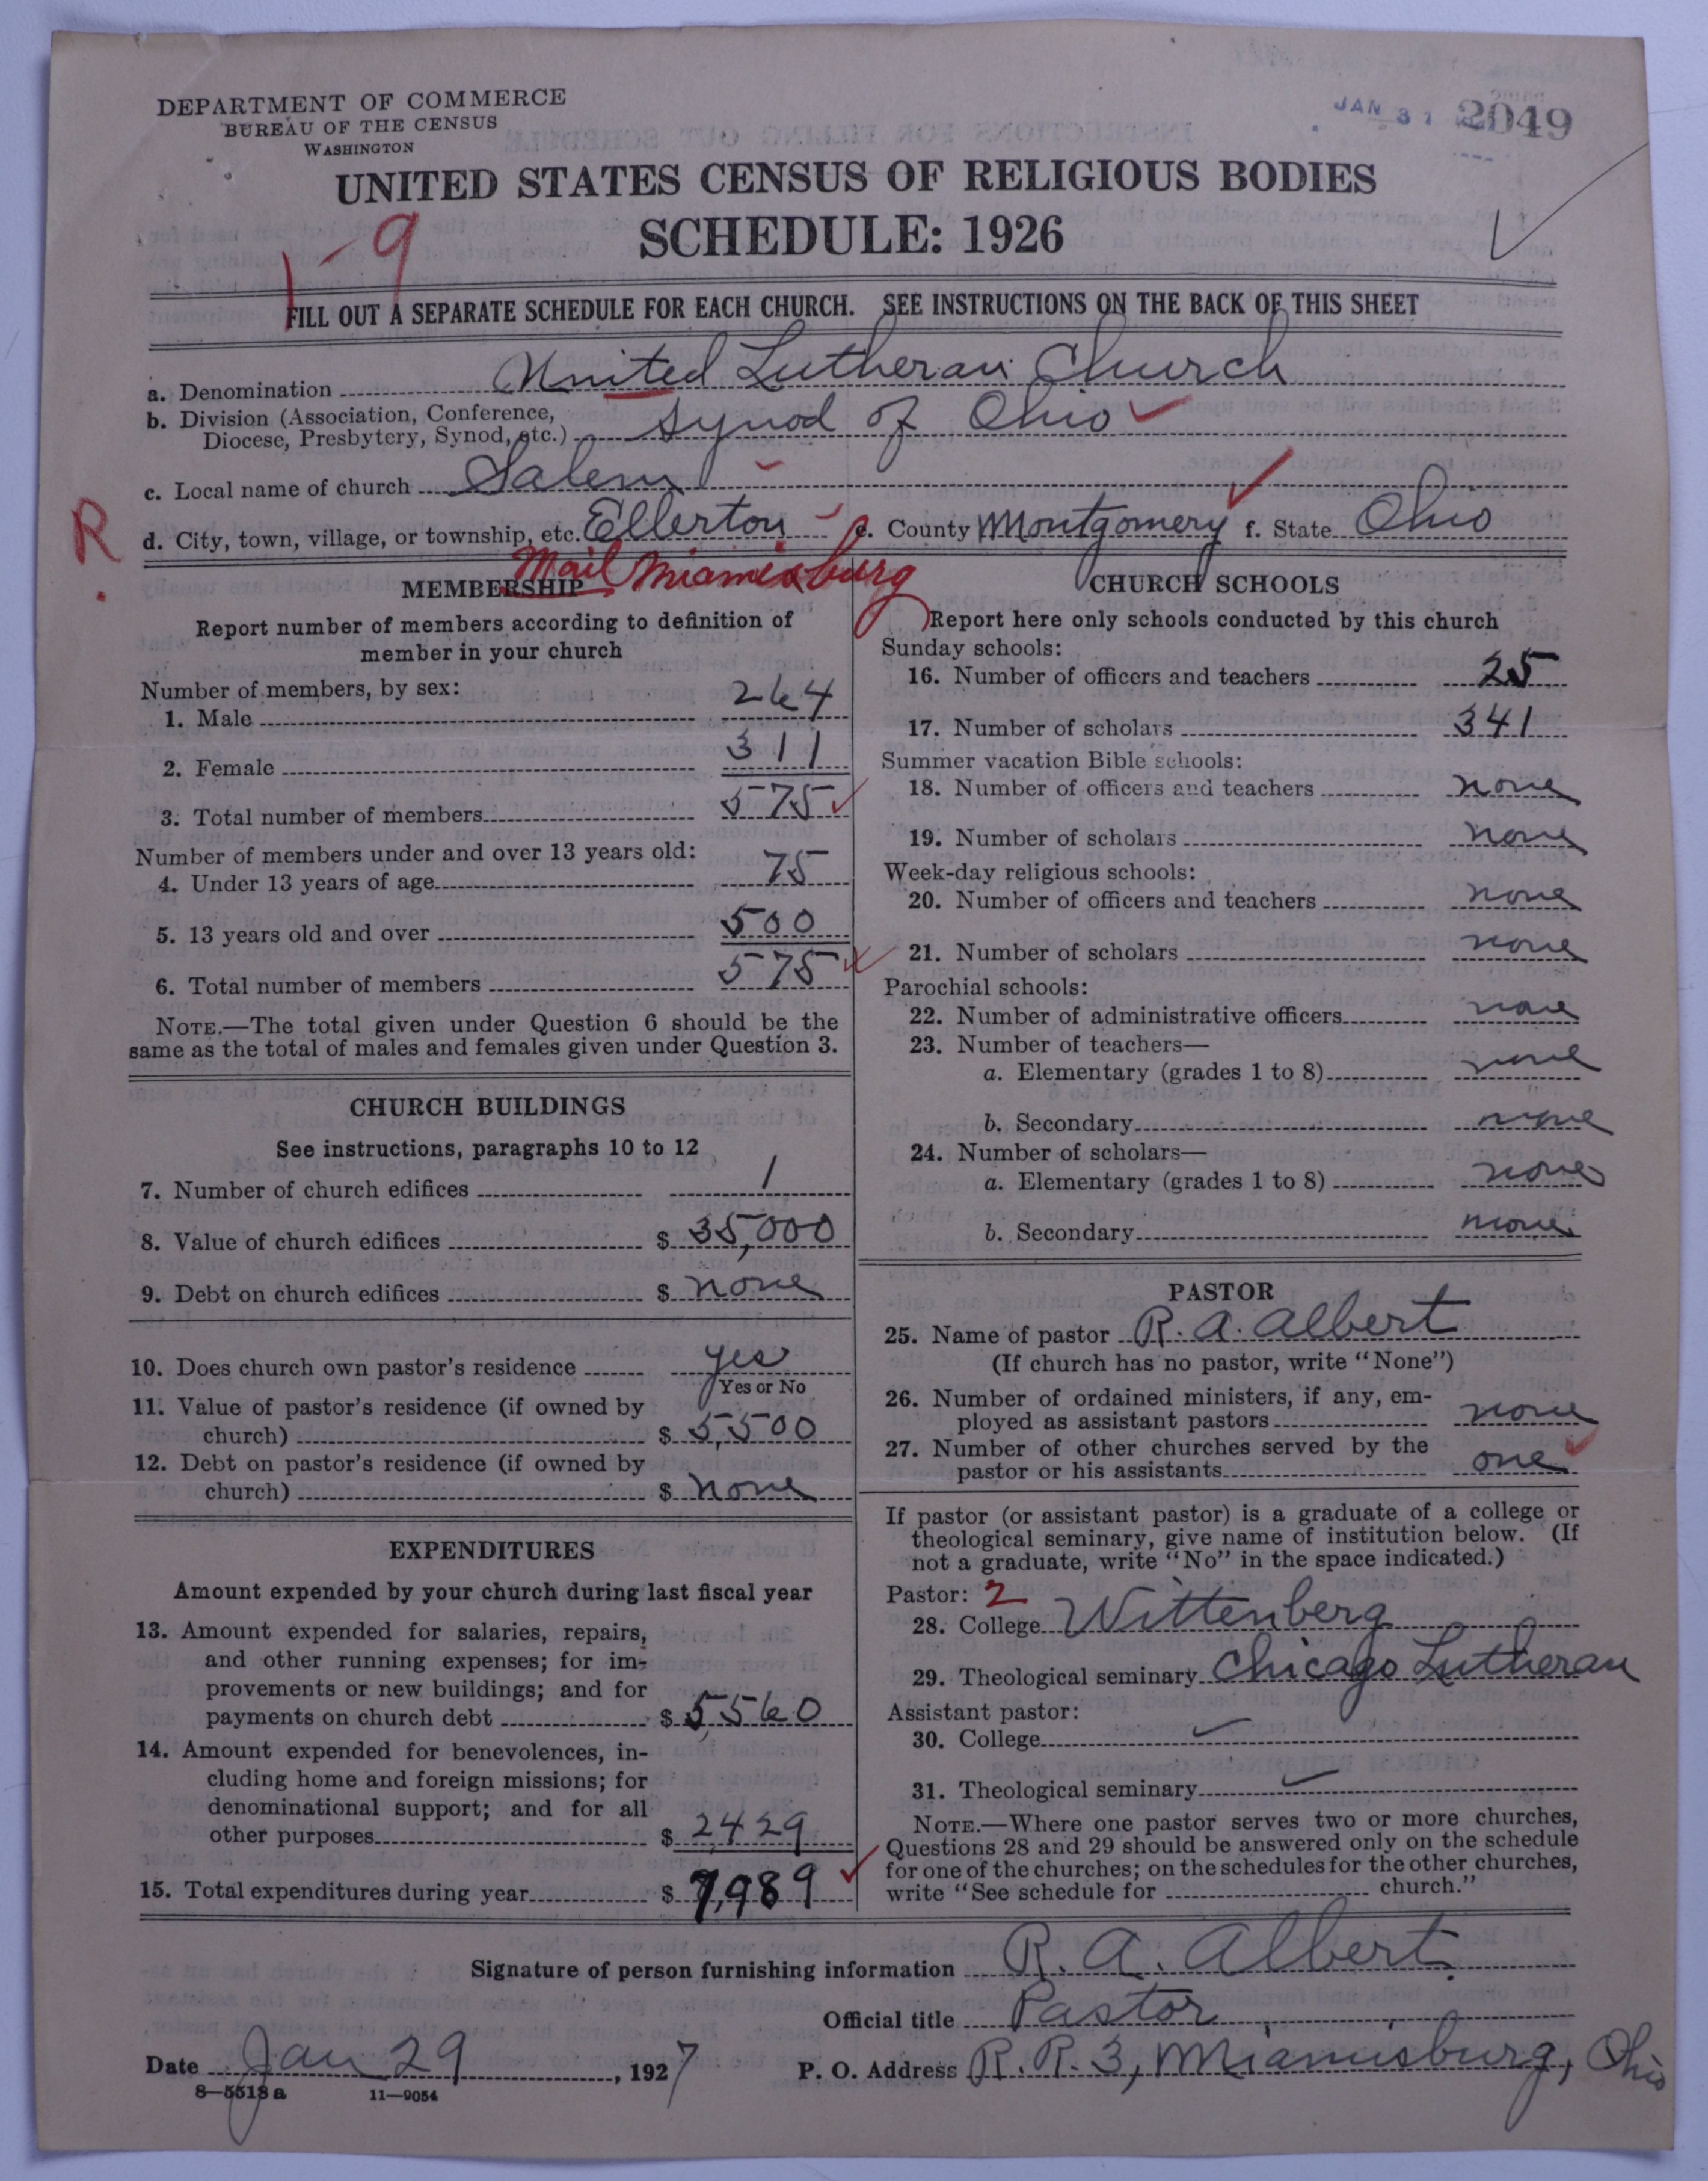 DEPARTMENT OF COMMERCE
BUREAU OF THE CENSUS
WASHINGTON
JAN 31
2049
UNITED STATES CENSUS OF RELIGIOUS BODIES
SCHEDULE: 1926
1-9
FILL OUT A SEPARATE SCHEDULE FOR EACH CHURCH. SEE INSTRUCTIONS ON THE BACK OF THIS SHEET
a. Denomination United Lutheran Church
b. Division (Association, Conference,
Diocese, Presbytery, Synod, etc.) Synod of Ohio
c. Local name of church Salem
R
d. City, town, village, or township, etc. Ellerton e. County Montgomery f. State Ohio
Mail Miamisburg
MEMBERSHIP
Report number of members according to definition of
member in your church
Number of members, by sex:
1. Male 264
2. Female 311
3. Total number of members 575
Number of members under and over 13 years old:
4. Under 13 years of age 75
5. 13 years old and over 500
6. Total number of members 575
NOTE.—The total given under Question 6 should be the
same as the total of males and females given under Question 3.
CHURCH BUILDINGS
See instructions, paragraphs 10 to 12
7. Number of church edifices 1
8. Value of church edifices $ 35,000
9. Debt on church edifices $ none
10. Does church own pastor's residence yes
Yes or No
11. Value of pastor's residence (if owned by
church) $ 5,500
12. Debt on pastor's residence (if owned by
church) $ none
EXPENDITURES
Amount expended by your church during last fiscal year
13. Amount expended for salaries, repairs,
and other running expenses; for im-
provements or new buildings; and for
payments on church debt $ 5,560
14. Amount expended for benevolences, in-
cluding home and foreign missions; for
denominational support; and for all
other purposes $ 2,429
15. Total expenditures during year $ 7,989
CHURCH SCHOOLS
Report here only schools conducted by this church
Sunday schools:
16. Number of officers and teachers 25
17. Number of scholars 341
Summer vacation Bible schools:
18. Number of officers and teachers none
19. Number of scholars none
Week-day religious schools:
20. Number of officers and teachers none
21. Number of scholars none
Parochial schools:
22. Number of administrative officers none
23. Number of teachers—
a. Elementary (grades 1 to 8) none
b. Secondary none
24. Number of scholars—
a. Elementary (grades 1 to 8) none
b. Secondary none
PASTOR
25. Name of pastor R. A. Albert
(If church has no pastor, write "None")
26. Number of ordained ministers, if any, em-
ployed as assistant pastors none
27. Number of other churches served by the
pastor or his assistants one
If pastor (or assistant pastor) is a graduate of a college or
theological seminary, give name of institution below. (If
not a graduate, write "No" in the space indicated.)
Pastor: 2
28. College Wittenberg
29. Theological seminary Chicago Lutheran
Assistant pastor:
30. College
31. Theological seminary
NOTE.—Where one pastor serves two or more churches,
Questions 28 and 29 should be answered only on the schedule
for one of the churches; on the schedules for the other churches,
write "See schedule for church."
Signature of person furnishing information R. A. Albert
Official title Pastor
Date Jan 29, 1927 P. O. Address R. R. 3, Miamisburg, Ohio
8—5518 a 11—9054